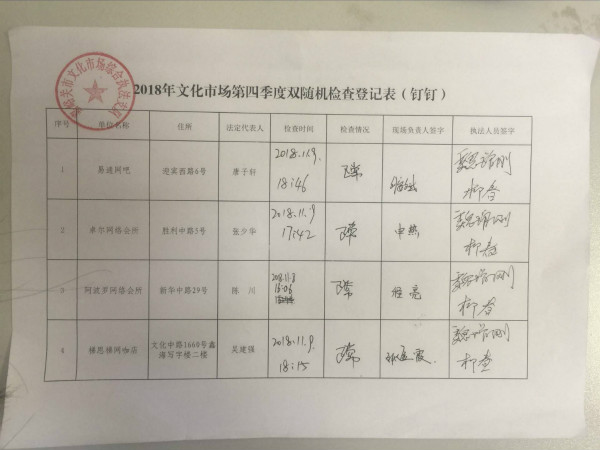 2018年文化市场第四季度双随机检查登记表（钉钉）
序号 单位名称 住所 法定代表人 检查时间 检查情况 现场负责人签字 执法人员签字
1 易道网吧 迎宾西路6号 唐子轩 2018.11.9. 18:46 正常
2 泰尔网络会所 胜利中路5号 张少华 2018.11.9 17:42 正常 申燕
3 阿波罗网络会所 新华中路29号 陈川 2018.11.9 18:06 正常 程亮
4 梯恩梯网咖店 文化中路1660号鑫海写字楼二楼 吴建强 2018.11.9. 18:15 正常